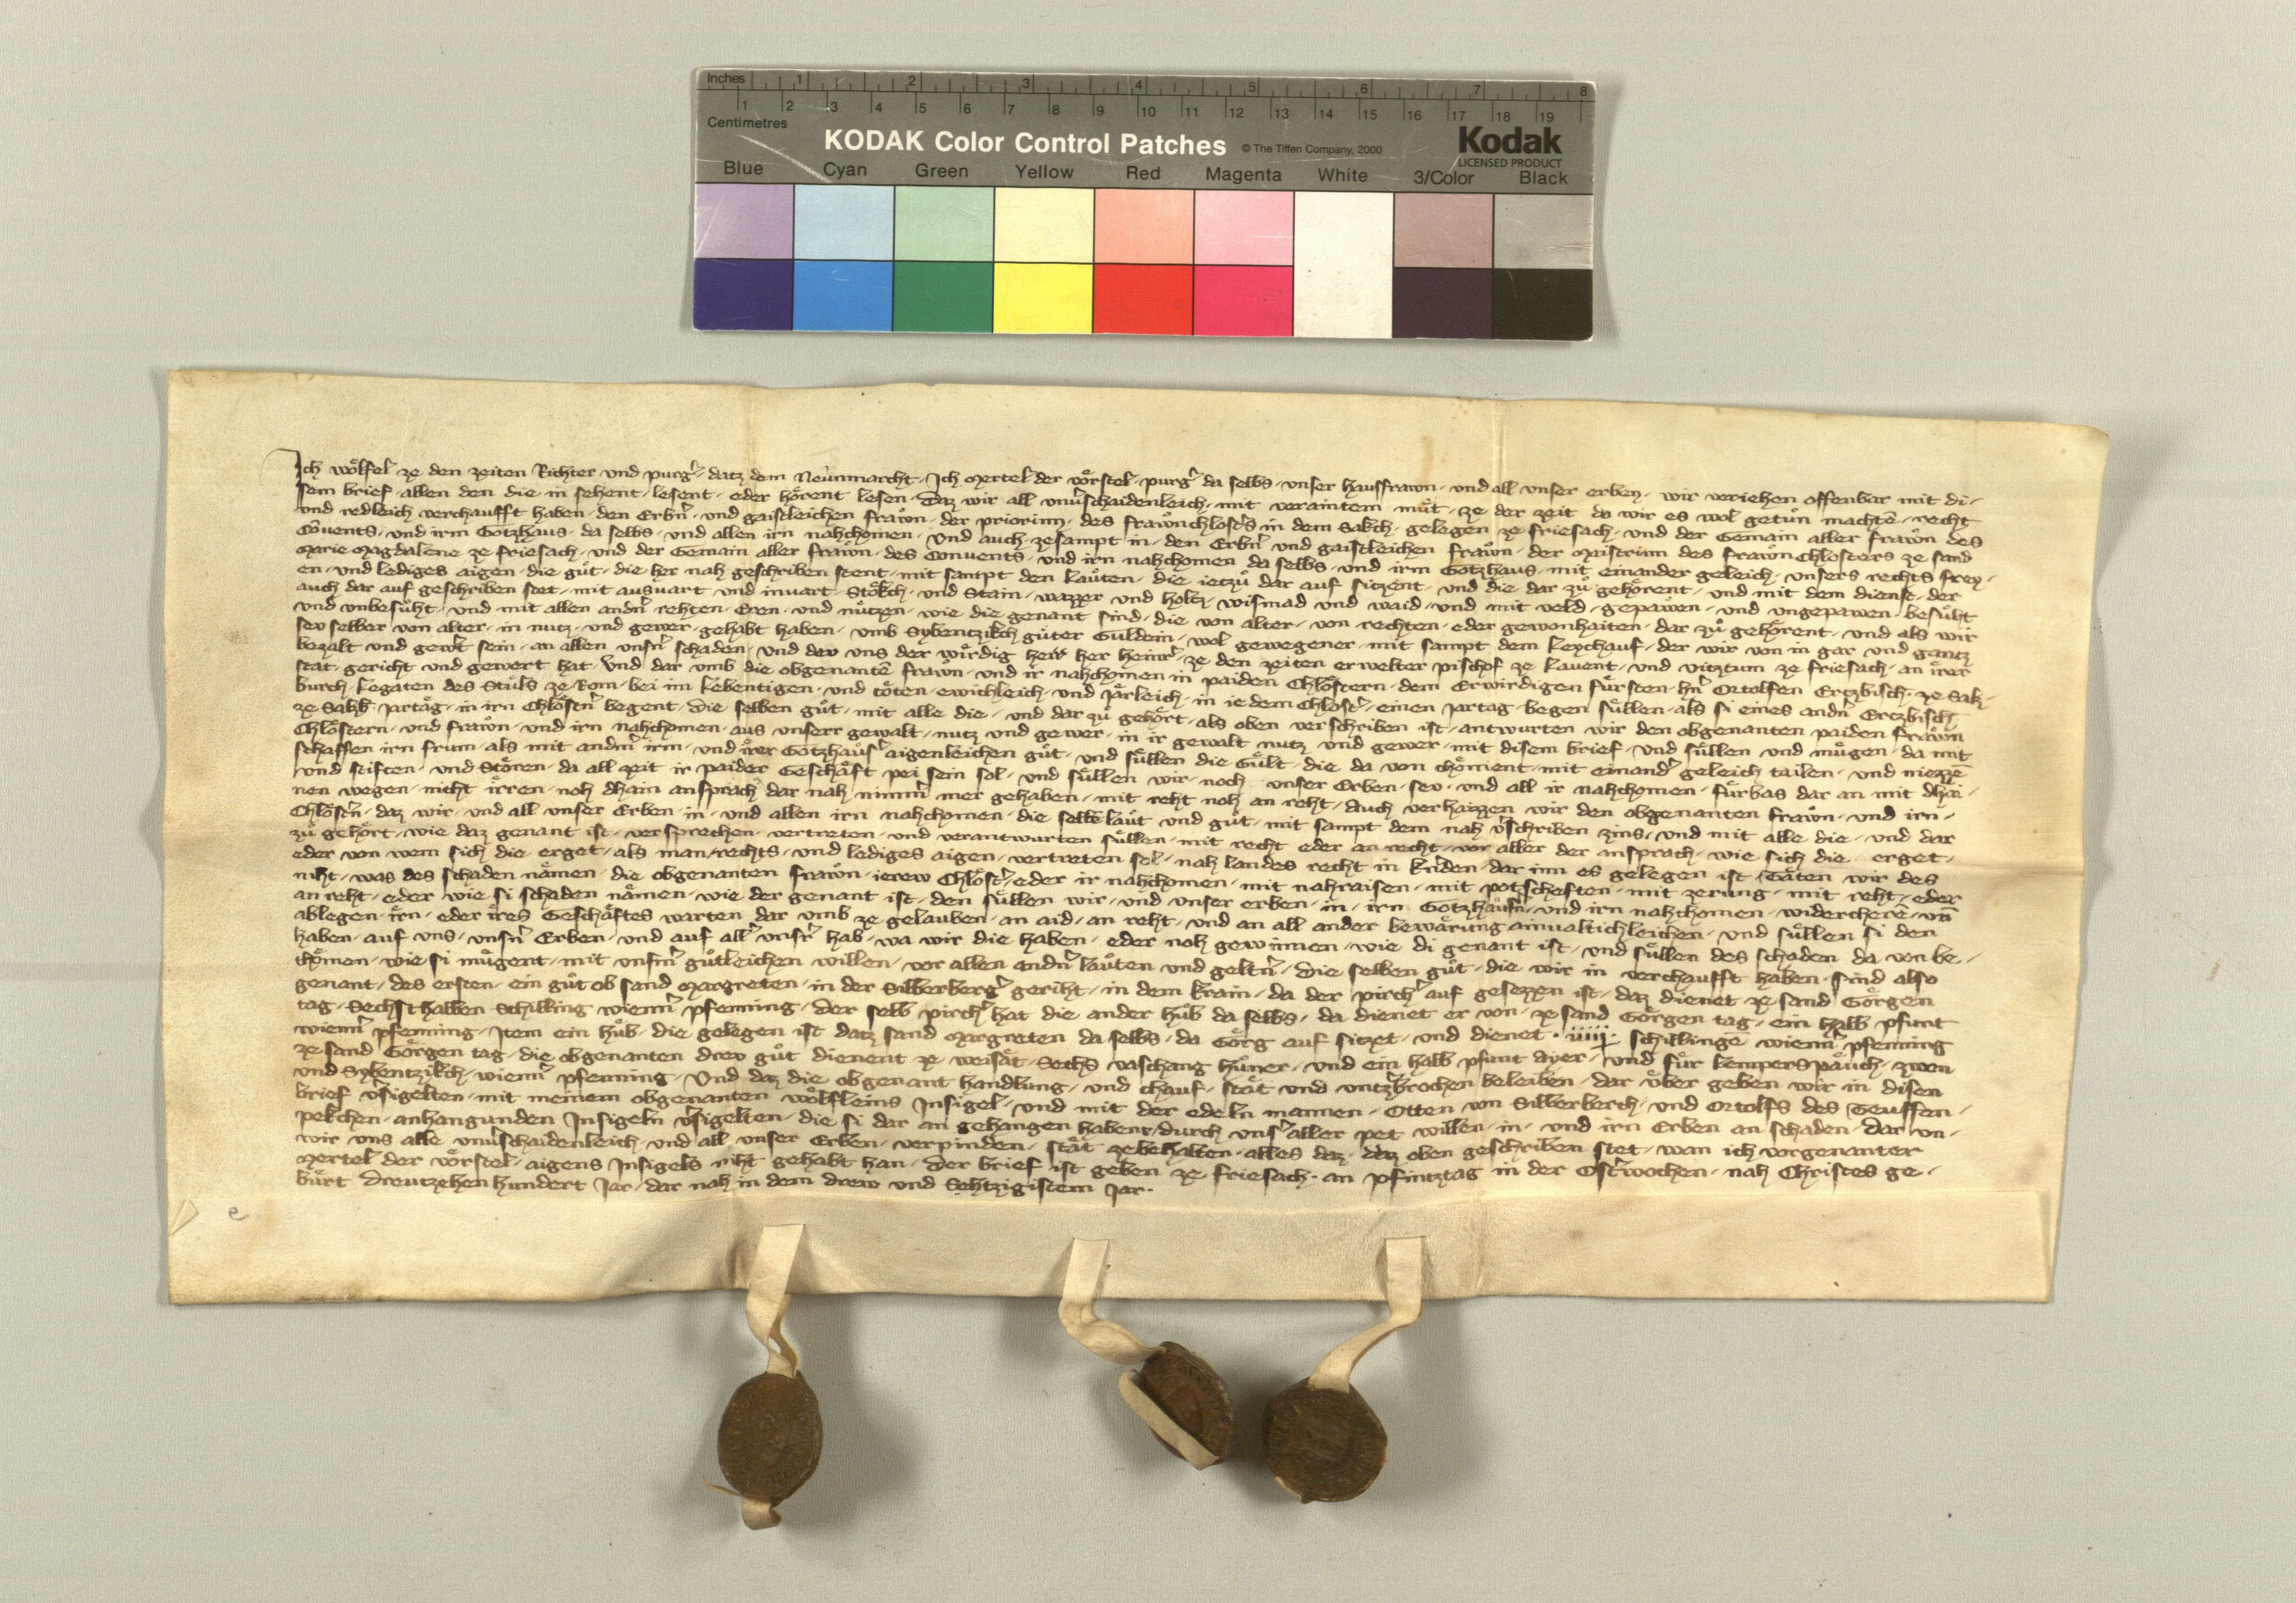 Inches 1 2 3 4 5 6 7 8
1 2 3 4 5 6 7 8 9 10 11 12 13 14 15 16 17 18 19
Centimetres
KODAK Color Control Patches © The Tiffen Company, 2000 Kodak
LICENSED PRODUCT
Blue Cyan Green Yellow Red Magenta White 3/Color Black
Ich wölfel ze den zeiten Richter und purgr̄ datz dem Neunmarcht Ich Mertel der vörstel purgr̄ da selbs unser hausfrawn und all unser erben wir veriehen offenbar mit di-
sem brief allen den die in sehent lesent eder hörent lesen daz wir all unūschaidenleich mit veraintem müt ze der zeit da wir es wol getün machtē recht
und redleich verchaufft haben den Erbn̄ und gaistleichen frawn der priorinn des frawnchlosters in dem Sakch gelegen ze friesach und der Gemain aller frawn des
Cōvents und irm Gotzhaus da selbs und allen irn nahchomen und auch zesampt in den Erbn̄ und gaistleichen frawn der Maistrinn des frawn Chlosters ze sand
Marie Magdalene ze friesach und der Gemain aller frawn des Convents und irn nahchomen da selbs und irm Gotzhaus mit einander geleich unsers rechts frey-
en und lediges aigen die güt die her nah geschriben stent mit sampt den laüten die ietzü dar auf sitzent und die dar zü gehörent und mit dem dienst der
auch dar auf geschriben stet mit ausvart und invart Stökch und Stain wazzer und holtz wismad und waid und mit veld gepawen und ungepawen besüht
und unbesüht und mit allen andn̄ rehten Eren und nützen wie die genant sind die von alter von rechten eder gewonhaiten dar zü gehörent und als wir
sev selber von alter in nutz und gewer gehabt haben umb Sybentzikch güter Guldein wol gewegener mit sampt dem leychauf der wir von in gar und gantz
bezalt und gewert sein an allen unsn̄ schaden und der uns der wirdig herr her heinr̄ ze den zeiten erwelter pischof ze Lavent und vitztum ze friesach an irer
stat gericht und gewert hat Und dar umb die obgenantē frawn und ir nahchomen in paiden Chlöstern dem Erwirdigen fürsten hn̄ Ortolfen Ertzbisch ze Saltz-
burch Legaten des Stüls ze Rom bei im lebentigen und töten ewichleich und Järleich in iedem Chlostr̄ einen Jartag begen süllen als si eines andn̄ Ertzbisch
ze Saltzb Jartäg in irn Chlöstn̄ begent Die selben güt mit alle die und dar zü gehört als oben verschriben ist antwurten wir den obgenanten paiden frawn
Chlöstern und frawn und irn nahchomen aus unserr gewalt nutz und gewer in ir gewalt nutz und gewer mit disem brief und süllen und mügen da mit
schaffen irn frum als mit andm̄ irm und irer Gotzhaüsr̄ aigenleichen güt und süllen die Gült die da von chöment mit einandr̄ geleich tailen und niezzē
und stiften und Stören da all zeit ir paider Geschäft pei sein sol und süllen wir noch unser Erben sev und all ir nahchomen fürbas dar an mit dhai-
nen wegen nicht irren noh dhain ansprach dar nah nimmr̄ mer gehaben mit reht noh an reht Auch verhaizzen wir den obgenanten frawn und irn
Chlöstn̄ daz wir und all unser Erben in und allen irn nahchomen die selbē laüt und güt mit sampt dem nah v̄schriben zins und mit alle die und dar
zü gehört wie daz genant ist versprechen vertreten und verantwurten süllen mit recht eder an recht vor aller der ansprach wie sich die erget
eder von wem sich die erget als man rechts und lediges aigen vertreten sol nah landes recht in Kernden dar inn es gelegen ist Täten wir des
niht was des schaden nämen die obgenanten frawn ierew Chlöstr̄ eder ir nahchomen mit nahraisen mit potschaften mit zerung mit reht eder
an reht eder wie si schaden nämen wie der genant ist den süllen wir und unser erben in irn Gotzhaüsn̄ und irn nahchomen widercherē un̄
ablegen irn eder ires Geschäftes warten dar umb ze gelauben an aid an reht und an all ander bewärung ainvaltichleichen und süllen si den
haben auf uns unsn̄ Erben und auf allr̄ unsr̄ hab wa wir die haben eder noh gewinnen wie di genant ist und süllen des schaden da von be-
chömen wie si mügent mit unsm̄ gütleichen willen vor allen andn̄ laüten und geltn̄ Die selben güt die wir in verchaufft haben sind also
genant des ersten ein güt ob sand Margreten in der Silberbergr̄ geriht in dem Krain da der pirchr̄ auf gesezzen ist daz dienet ze sand Görgen
tag Sechsthalben Schilling wienn̄ pfenning der selb pirchr̄ hat die ander hüb da selbs da dienet er von ze sand Görgen tag ein halb pfunt
wienn̄ pfenning Item ein hüb die gelegen ist datz sand Margreten da selbs da Görg auf sitzet und dienet iiiij schillingē wienn̄ pfenning
ze sand Görgen tag die obgenanten drev güt dienent ze weisät Sechs vaschang hüner und ein halb pfunt ayer und für kempers päuch zwen
und Sybentzikch wienn̄ pfenning Und daz die obgenant handlung und chauf stät und untzbrochen beleiben dar über geben wir in disen
brief v̄sigelten mit meinem obgenanten wölfleins Insigel und mit der edeln mannen Otten von Silberberch und Ortolfs des Teuffen-
pekchen anhangunden Insigeln v̄sigelten die si dar an gehangen habent durch unsr̄ aller pet willen in und irn Erben an schaden dar un-
wir uns alle unūschaidenleich und all unser Erben verpinden stät zebehalten alles daz daz oben geschriben stet wan ich vorgenanter
Mertel der vörstel aigens Insigels niht gehabt han Der brief ist geben ze friesach an pfintztag in der Ostr̄wochen nah Christes ge-
bürt Dreutzehen hundert Jar dar nah in dem drew und Sehtzigistem Jar
e